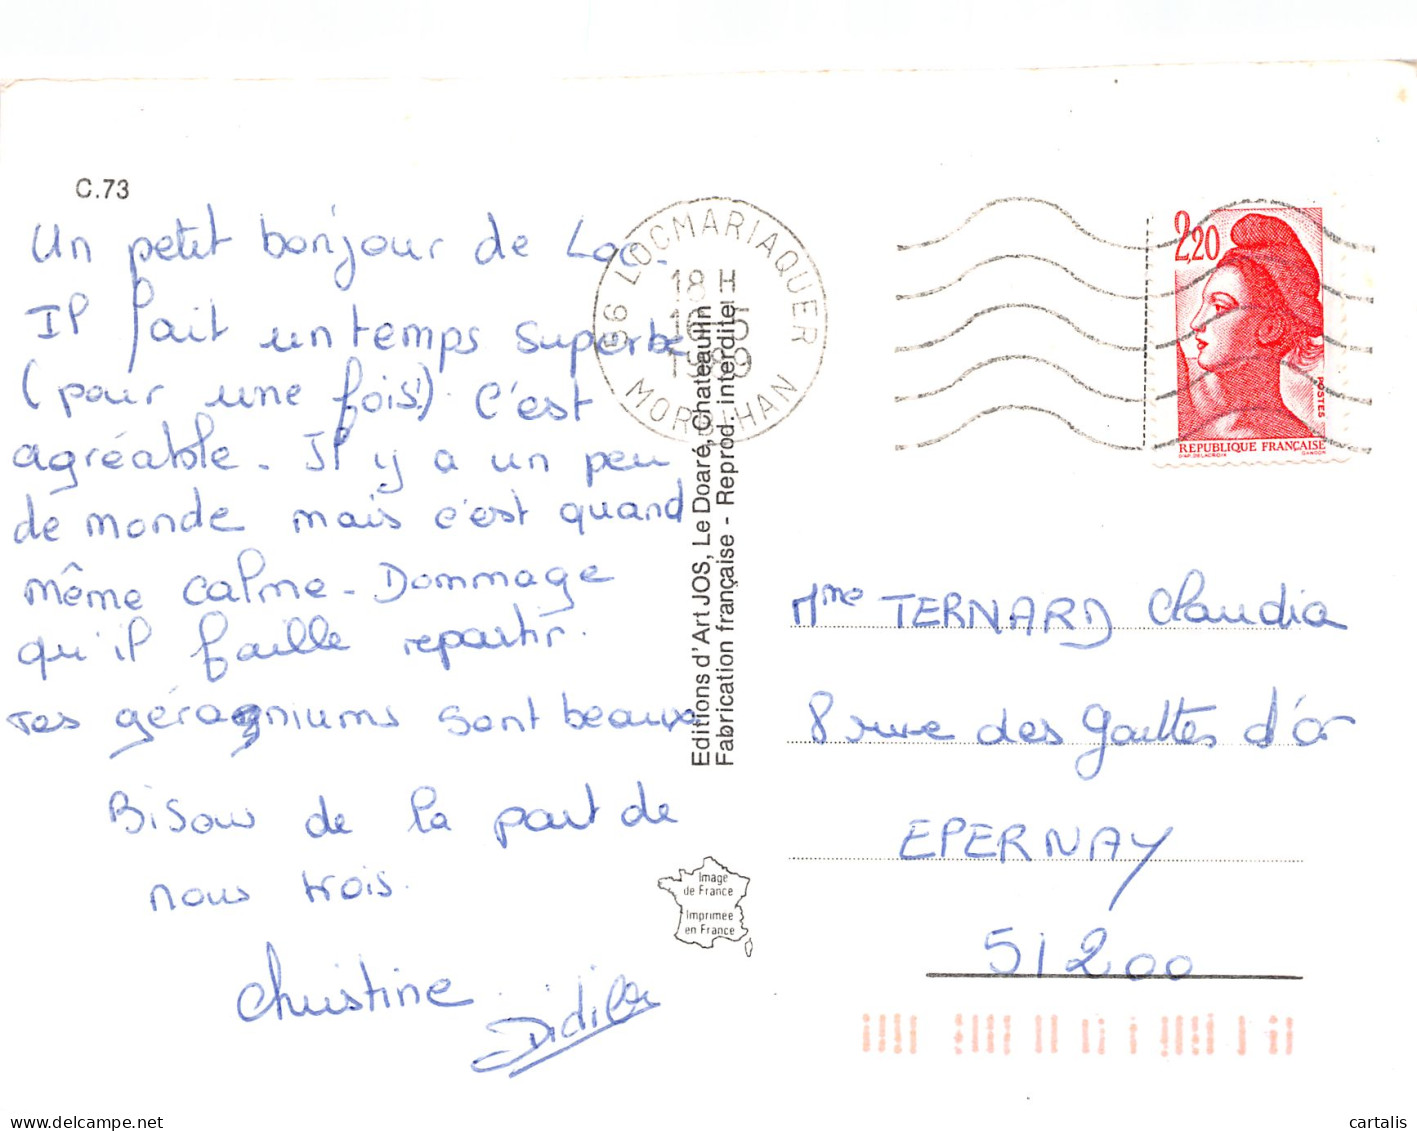 C.73
Un petit bonjour de Loc-
Il fait un temps superbe
(pour une fois!) C'est
agréable. Il y a un peu
de monde mais c'est quand
même calme - Dommage
qu'il faille repartir.
Tes géraniums sont beaux
Bisous de la part de
nous trois.
Christine
Didier
56 LOCMARIAQUER
18 H
16-5
1989
MORBIHAN
Editions d'Art JOS, Le Doaré, Chateaulin
Fabrication française - Reprod. interdite
Image
de France
Imprimée
en France
2,20
POSTES
REPUBLIQUE FRANÇAISE
D'AP. DELACROIX GANDON
Mme TERNARD Claudia
8 rue des Gouttes d'or
EPERNAY
51200
delcampe.net
cartalis